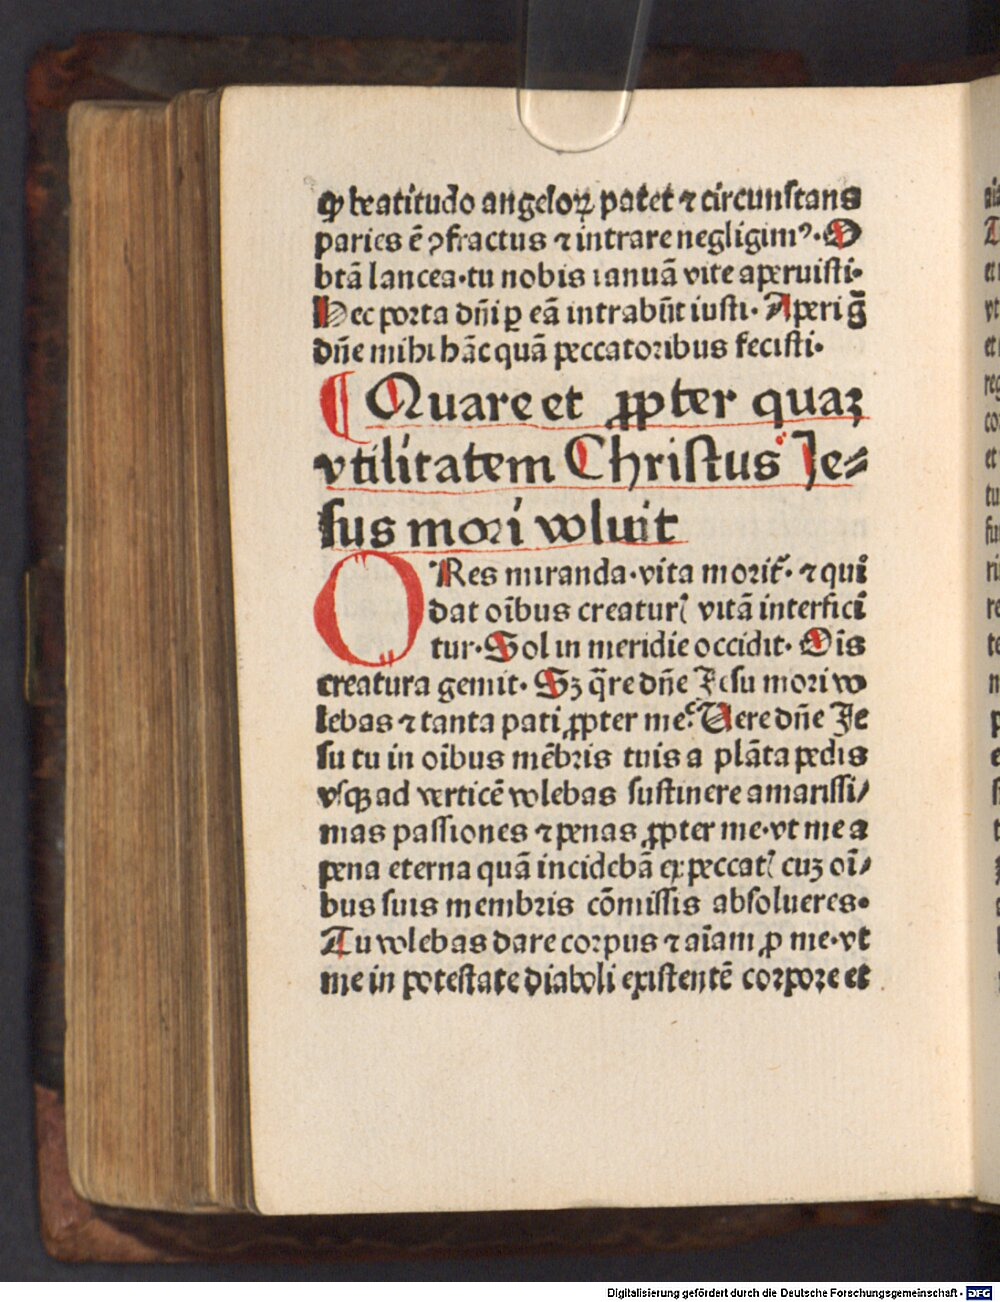 ꝙ beatitudo angeloꝝ patet ⁊ circunſtans
paries ē ꝯfractus ⁊ intrare negligimꝰ. O
btā lancea.tu nobis ianuā vite aperuiſti.
Hec porta dñi ꝑ eā intrabūt iuſti. Aperi g̃
dñe mihi hāc quā peccatoribus feciſti.
¶ Quare et ꝓpter quaꝫ
vtilitatem Chriſtus Je⸗
ſus mori voluit
O Res miranda.vita morit᷑. ⁊ qui
dat oībus creaturꝭ vitā interfici
tur. Sol in meridie occidit. Oīs
creatura gemit. Sꝫ q̄re dñe Jeſu mori vo
lebas ⁊ tanta pati ꝓpter me? Uere dñe Je
ſu tu in oībus mēbris tuis a plāta pedis
vſqꝫ ad verticē volebas ſuſtinere amariſſi/
mas paſſiones ⁊ penas ꝓpter me.vt me a
pena eterna quā incidebā ex peccatꝭ cuꝫ oī/
bus ſuis membris cōmiſſis abſolueres.
Tu volebas dare corpus ⁊ aīam ꝓ me.vt
me in poteſtate diaboli exiſtentē corpore et
Digitalisierung gefördert durch die Deutsche Forschungsgemeinschaft - DFG